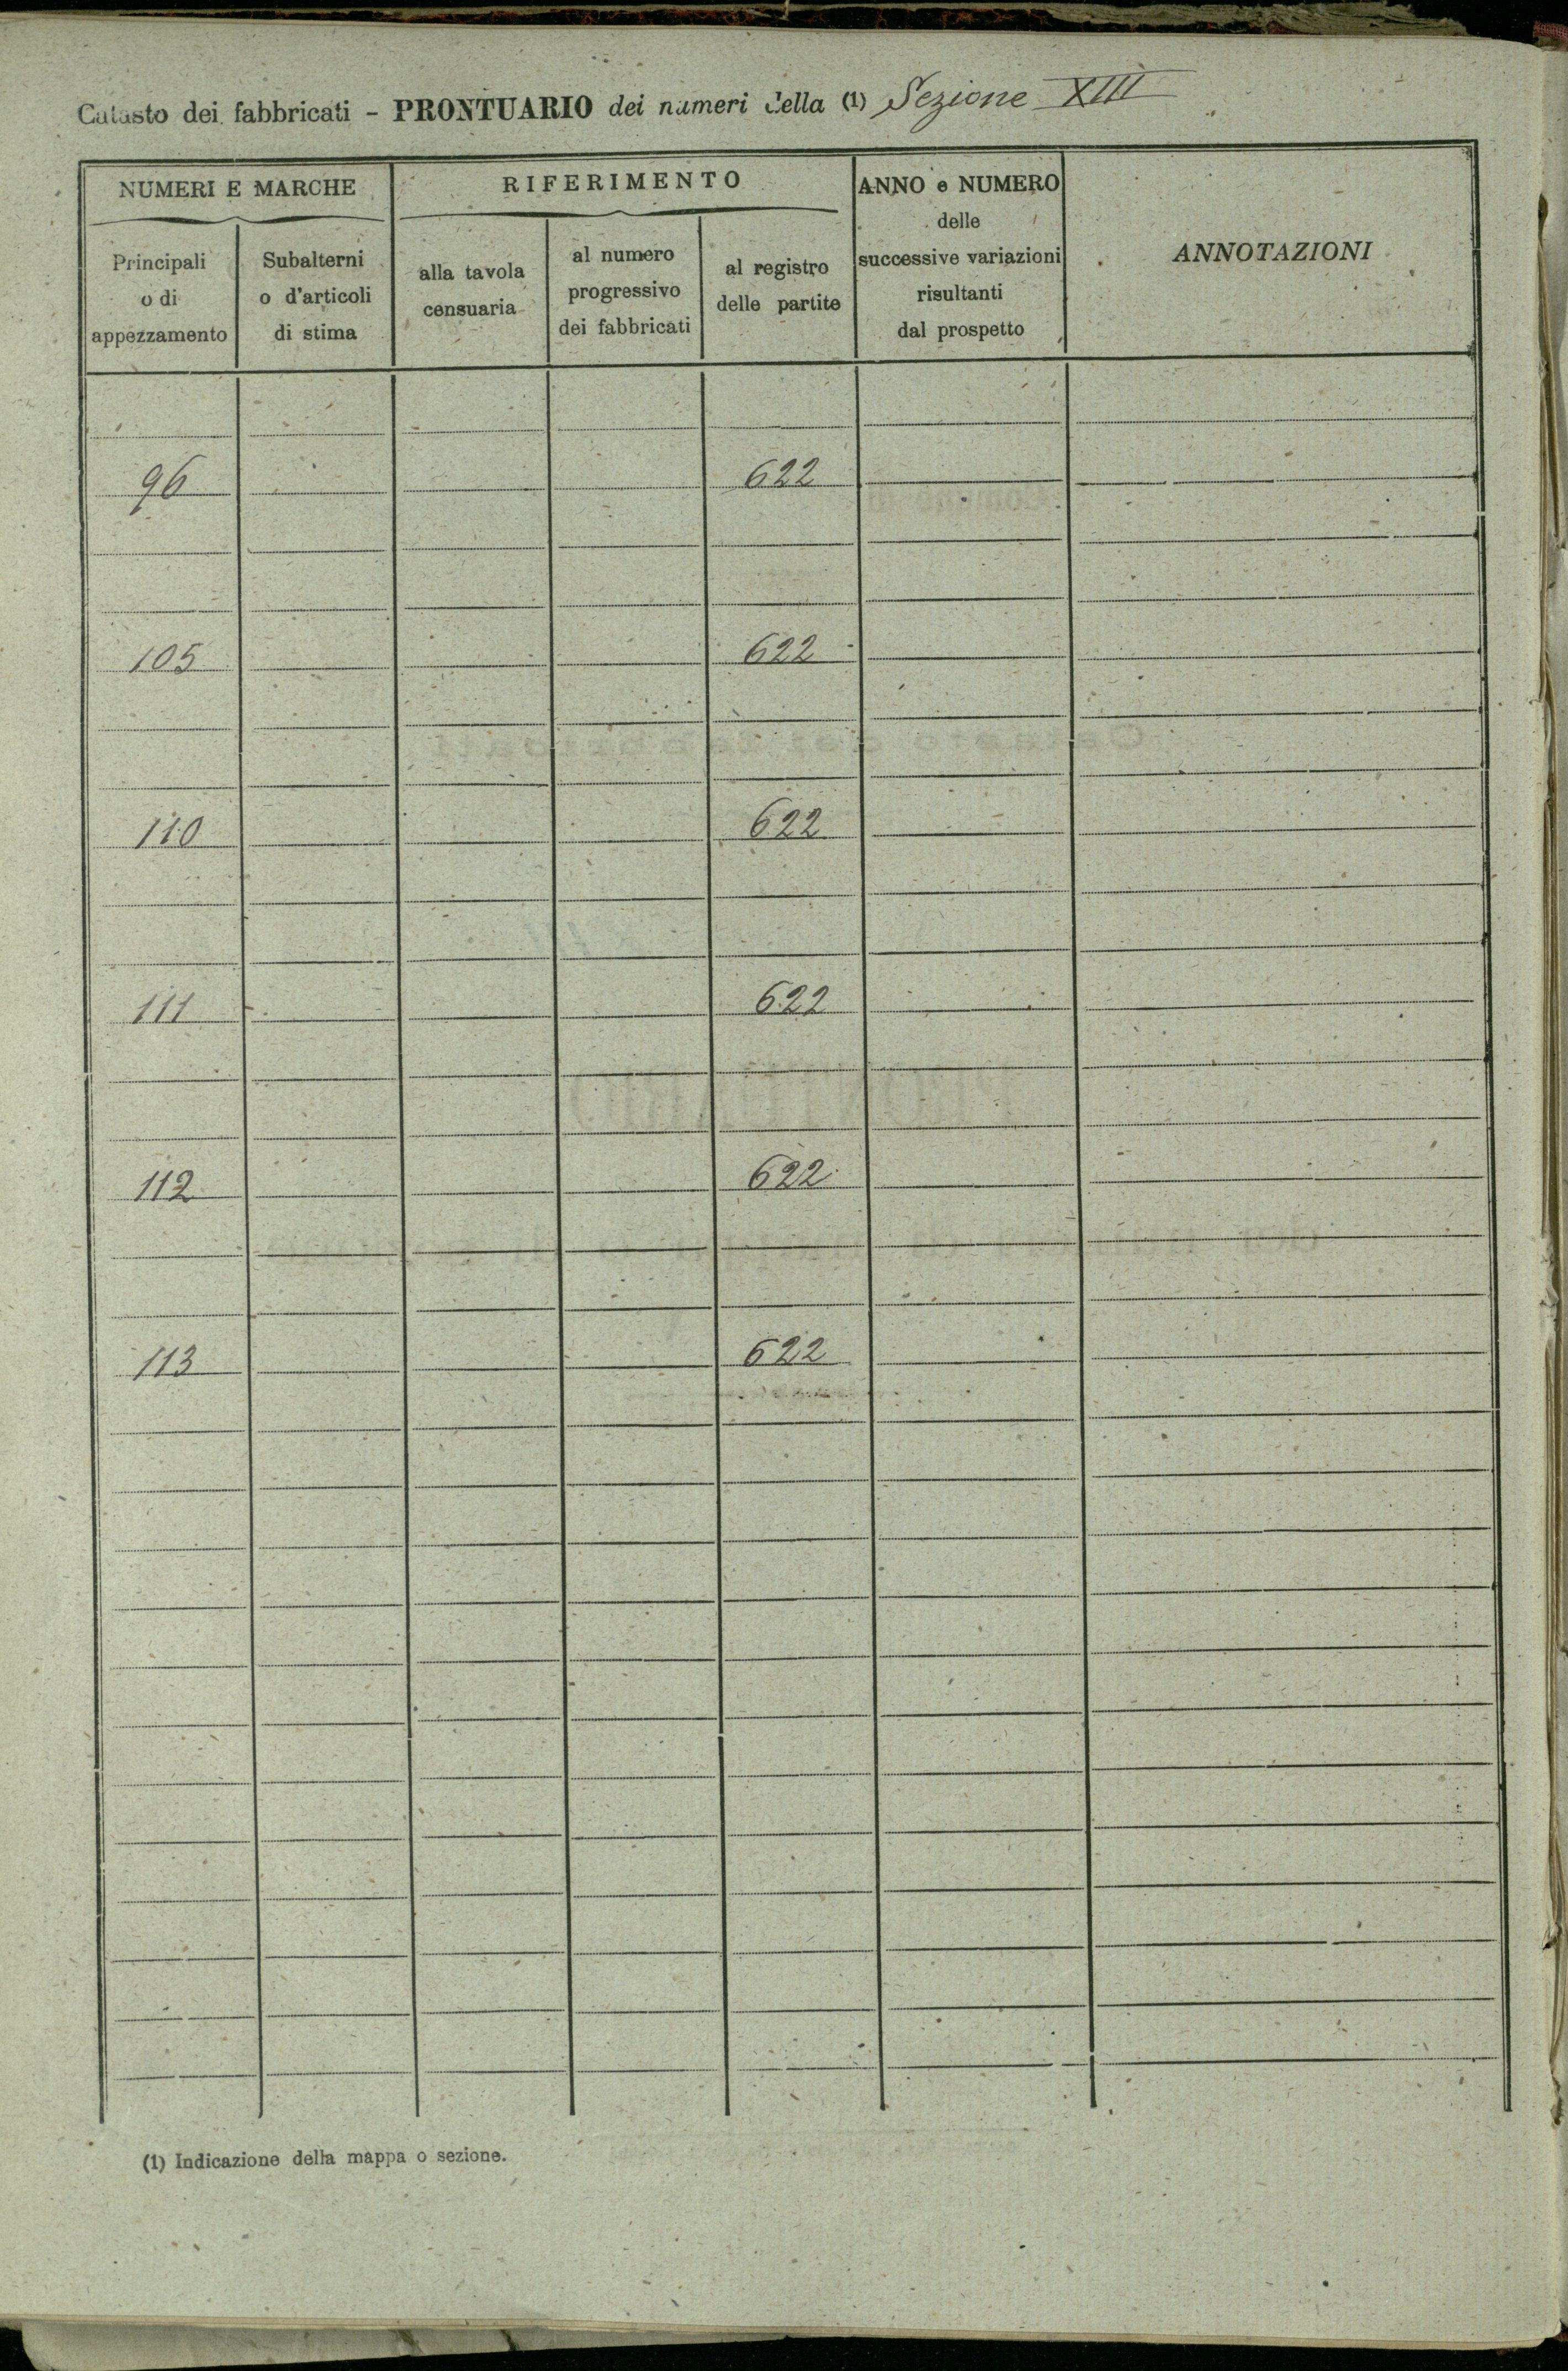 Catasto dei fabbricati - PRONTUARIO dei numeri della (1) Sezione XIII
NUMERI E MARCHE
Principali
o di
appezzamento
Subalterni
o d'articoli
di stima
RIFERIMENTO
alla tavola
censuaria
al numero
progressivo
dei fabbricati
al registro
delle partite
ANNO e NUMERO
delle
successive variazioni
risultanti
dal prospetto
ANNOTAZIONI
96 622
105 622
110 622
111 622
112 622
113 622
(1) Indicazione della mappa o sezione.